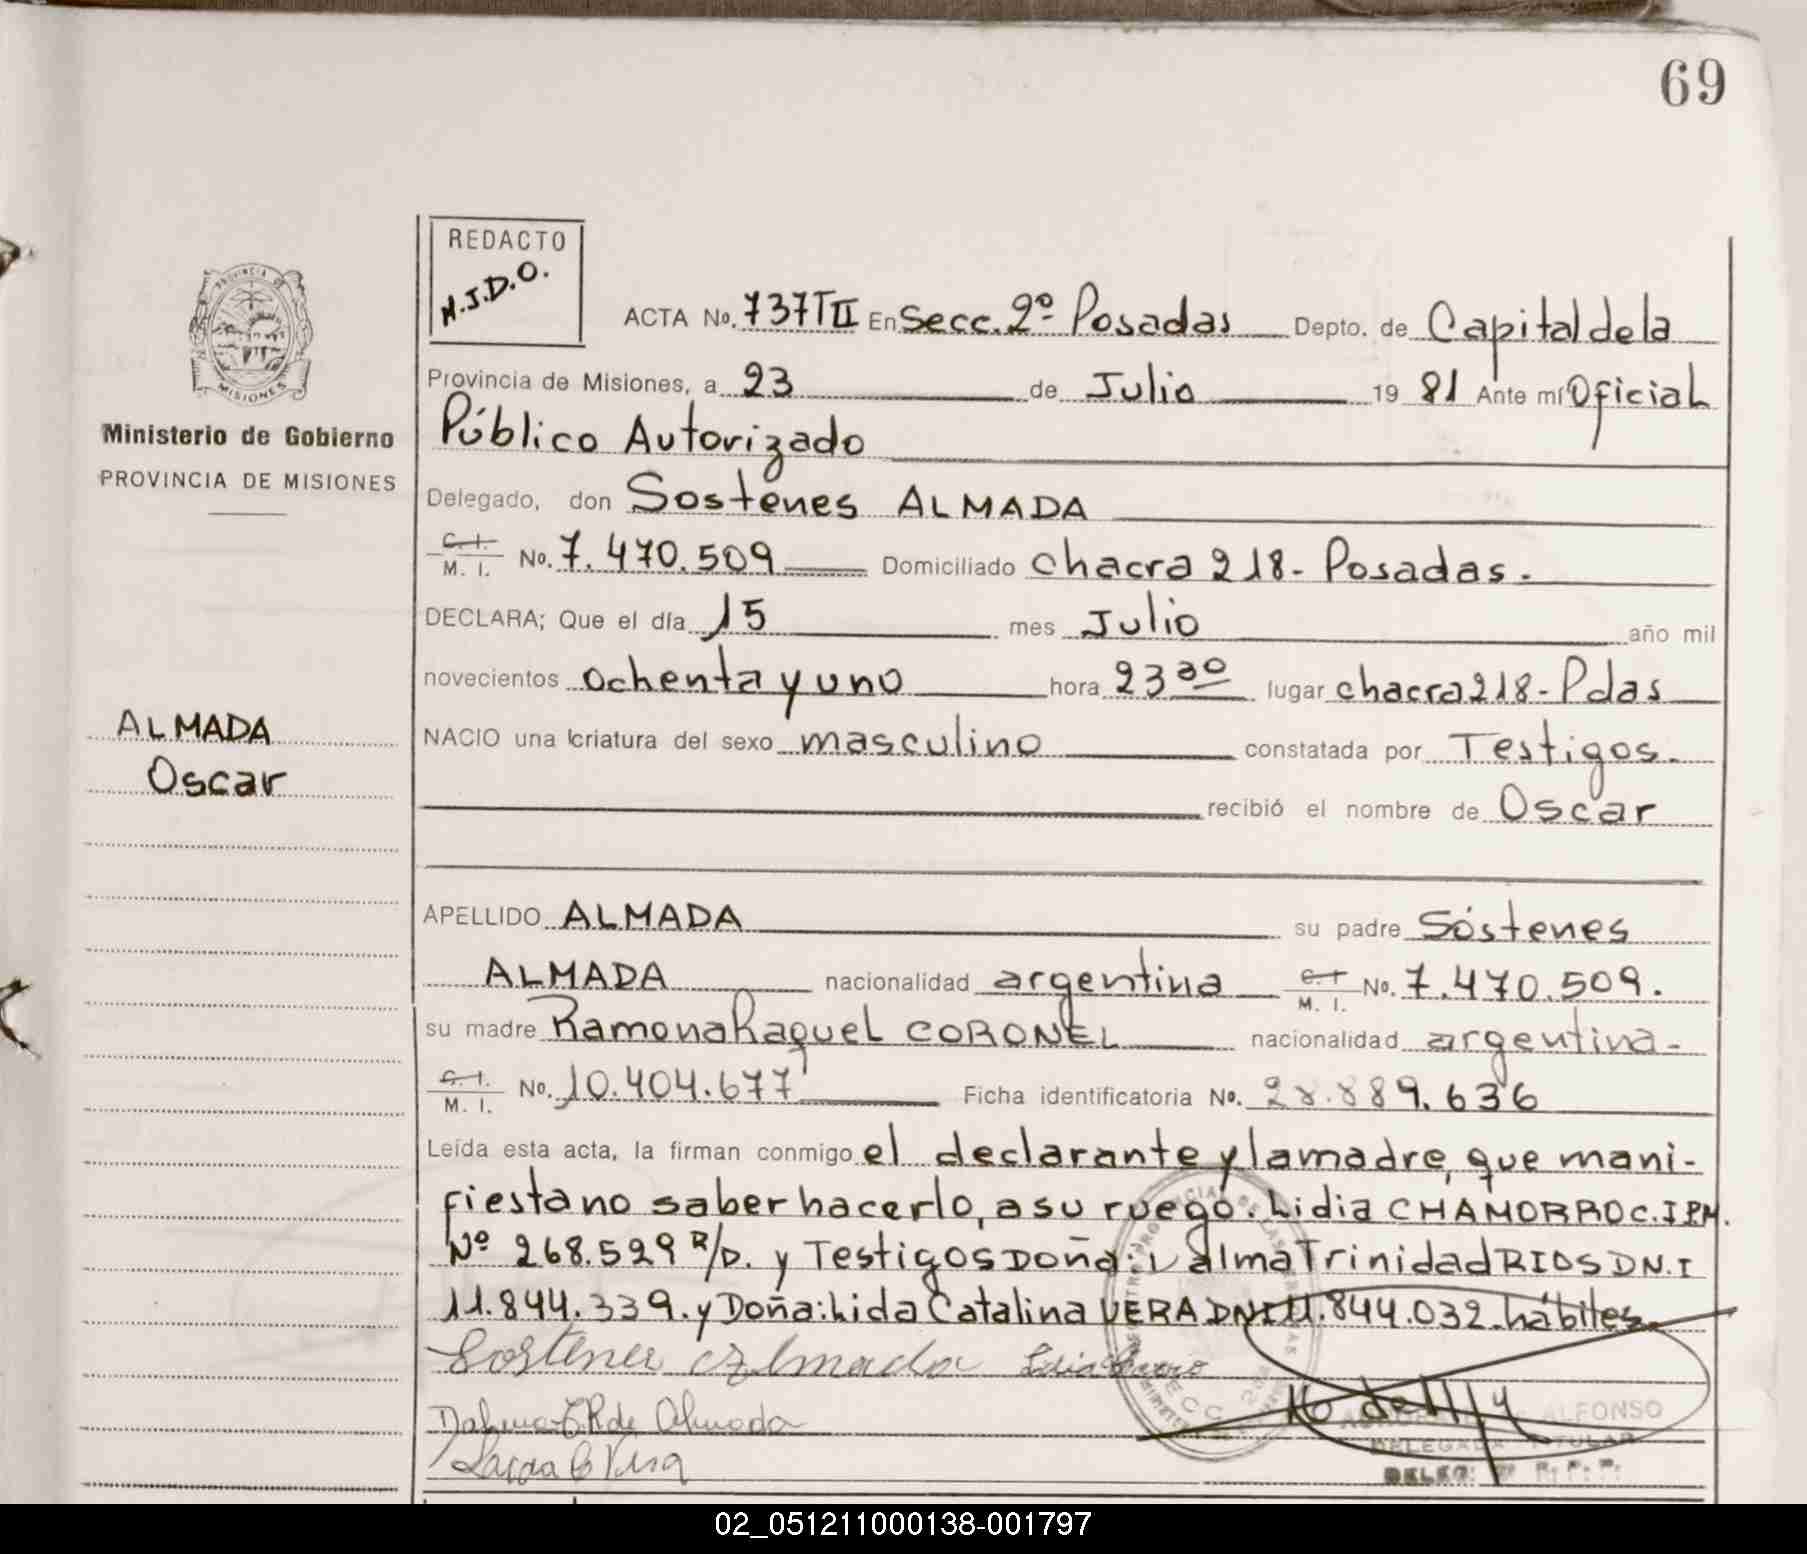 69
REDACTO
M.J.D.O.
ACTA No. 737 T II En Secc. 2º Posadas Depto. de Capital de la
Provincia de Misiones, a 23 de Julio 19 81 Ante mí Oficial
Público Autorizado
Delegado, don Sostenes ALMADA
C. I. M. I. No. 7.470.509 Domiciliado chacra 218 - Posadas.
DECLARA; Que el día 15 mes Julio año mil
novecientos ochenta y uno hora 23 30 lugar chacra 218 - Pdas
NACIO una criatura del sexo masculino constatada por Testigos.
recibió el nombre de Oscar
APELLIDO ALMADA su padre Sóstenes
ALMADA nacionalidad argentina C. I. M. I. No. 7.470.509.
su madre Ramona Raquel CORONEL nacionalidad argentina -
C. I. M. I. No. 10.404.677 Ficha identificatoria No. 28.889.636
Leída esta acta, la firman conmigo el declarante y la madre, que mani-
fiesta no saber hacerlo, a su ruego: Lidia CHAMORRO C.I.P.M.
Nº 268.529 R/D. y Testigos Doña: Trinidad RIOS D.N.I
11.844.339. y Doña: Lida Catalina VERA DNI 11.844.032. hábiles.
Sostenes Almada
de Almada
Vera
ALFONSO
DELEGADA TITULAR
MISIONES
Ministerio de Gobierno
PROVINCIA DE MISIONES
ALMADA
Oscar
02_051211000138-001797